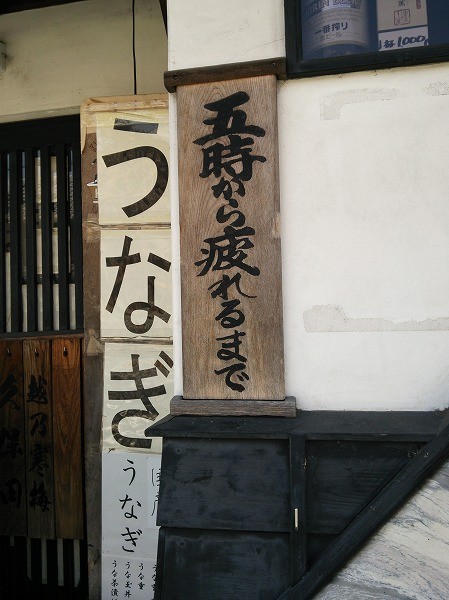 五時から疲れるまで
うなぎ
国産
うなぎ
うな重
うな玉丼
うな茶漬
越乃寒梅
久保田
一番搾り
1000